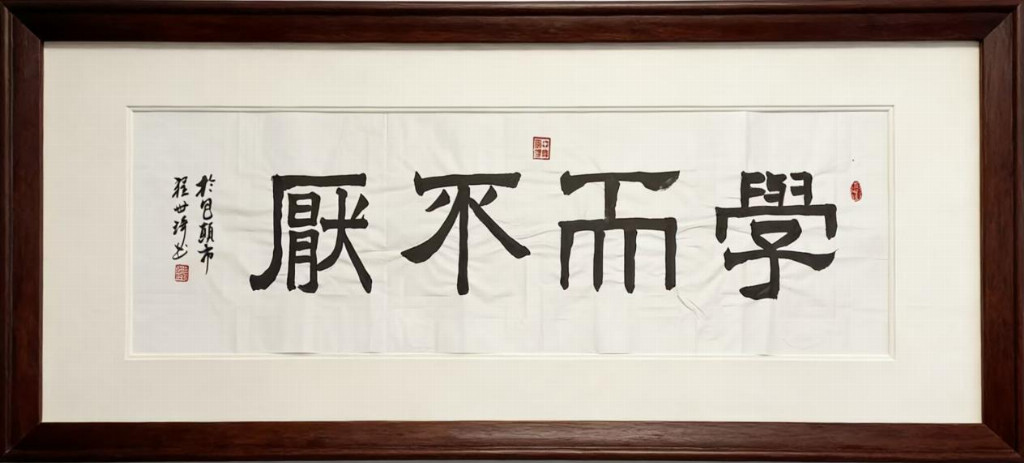 學而不厭
於包頭市
程世琦书